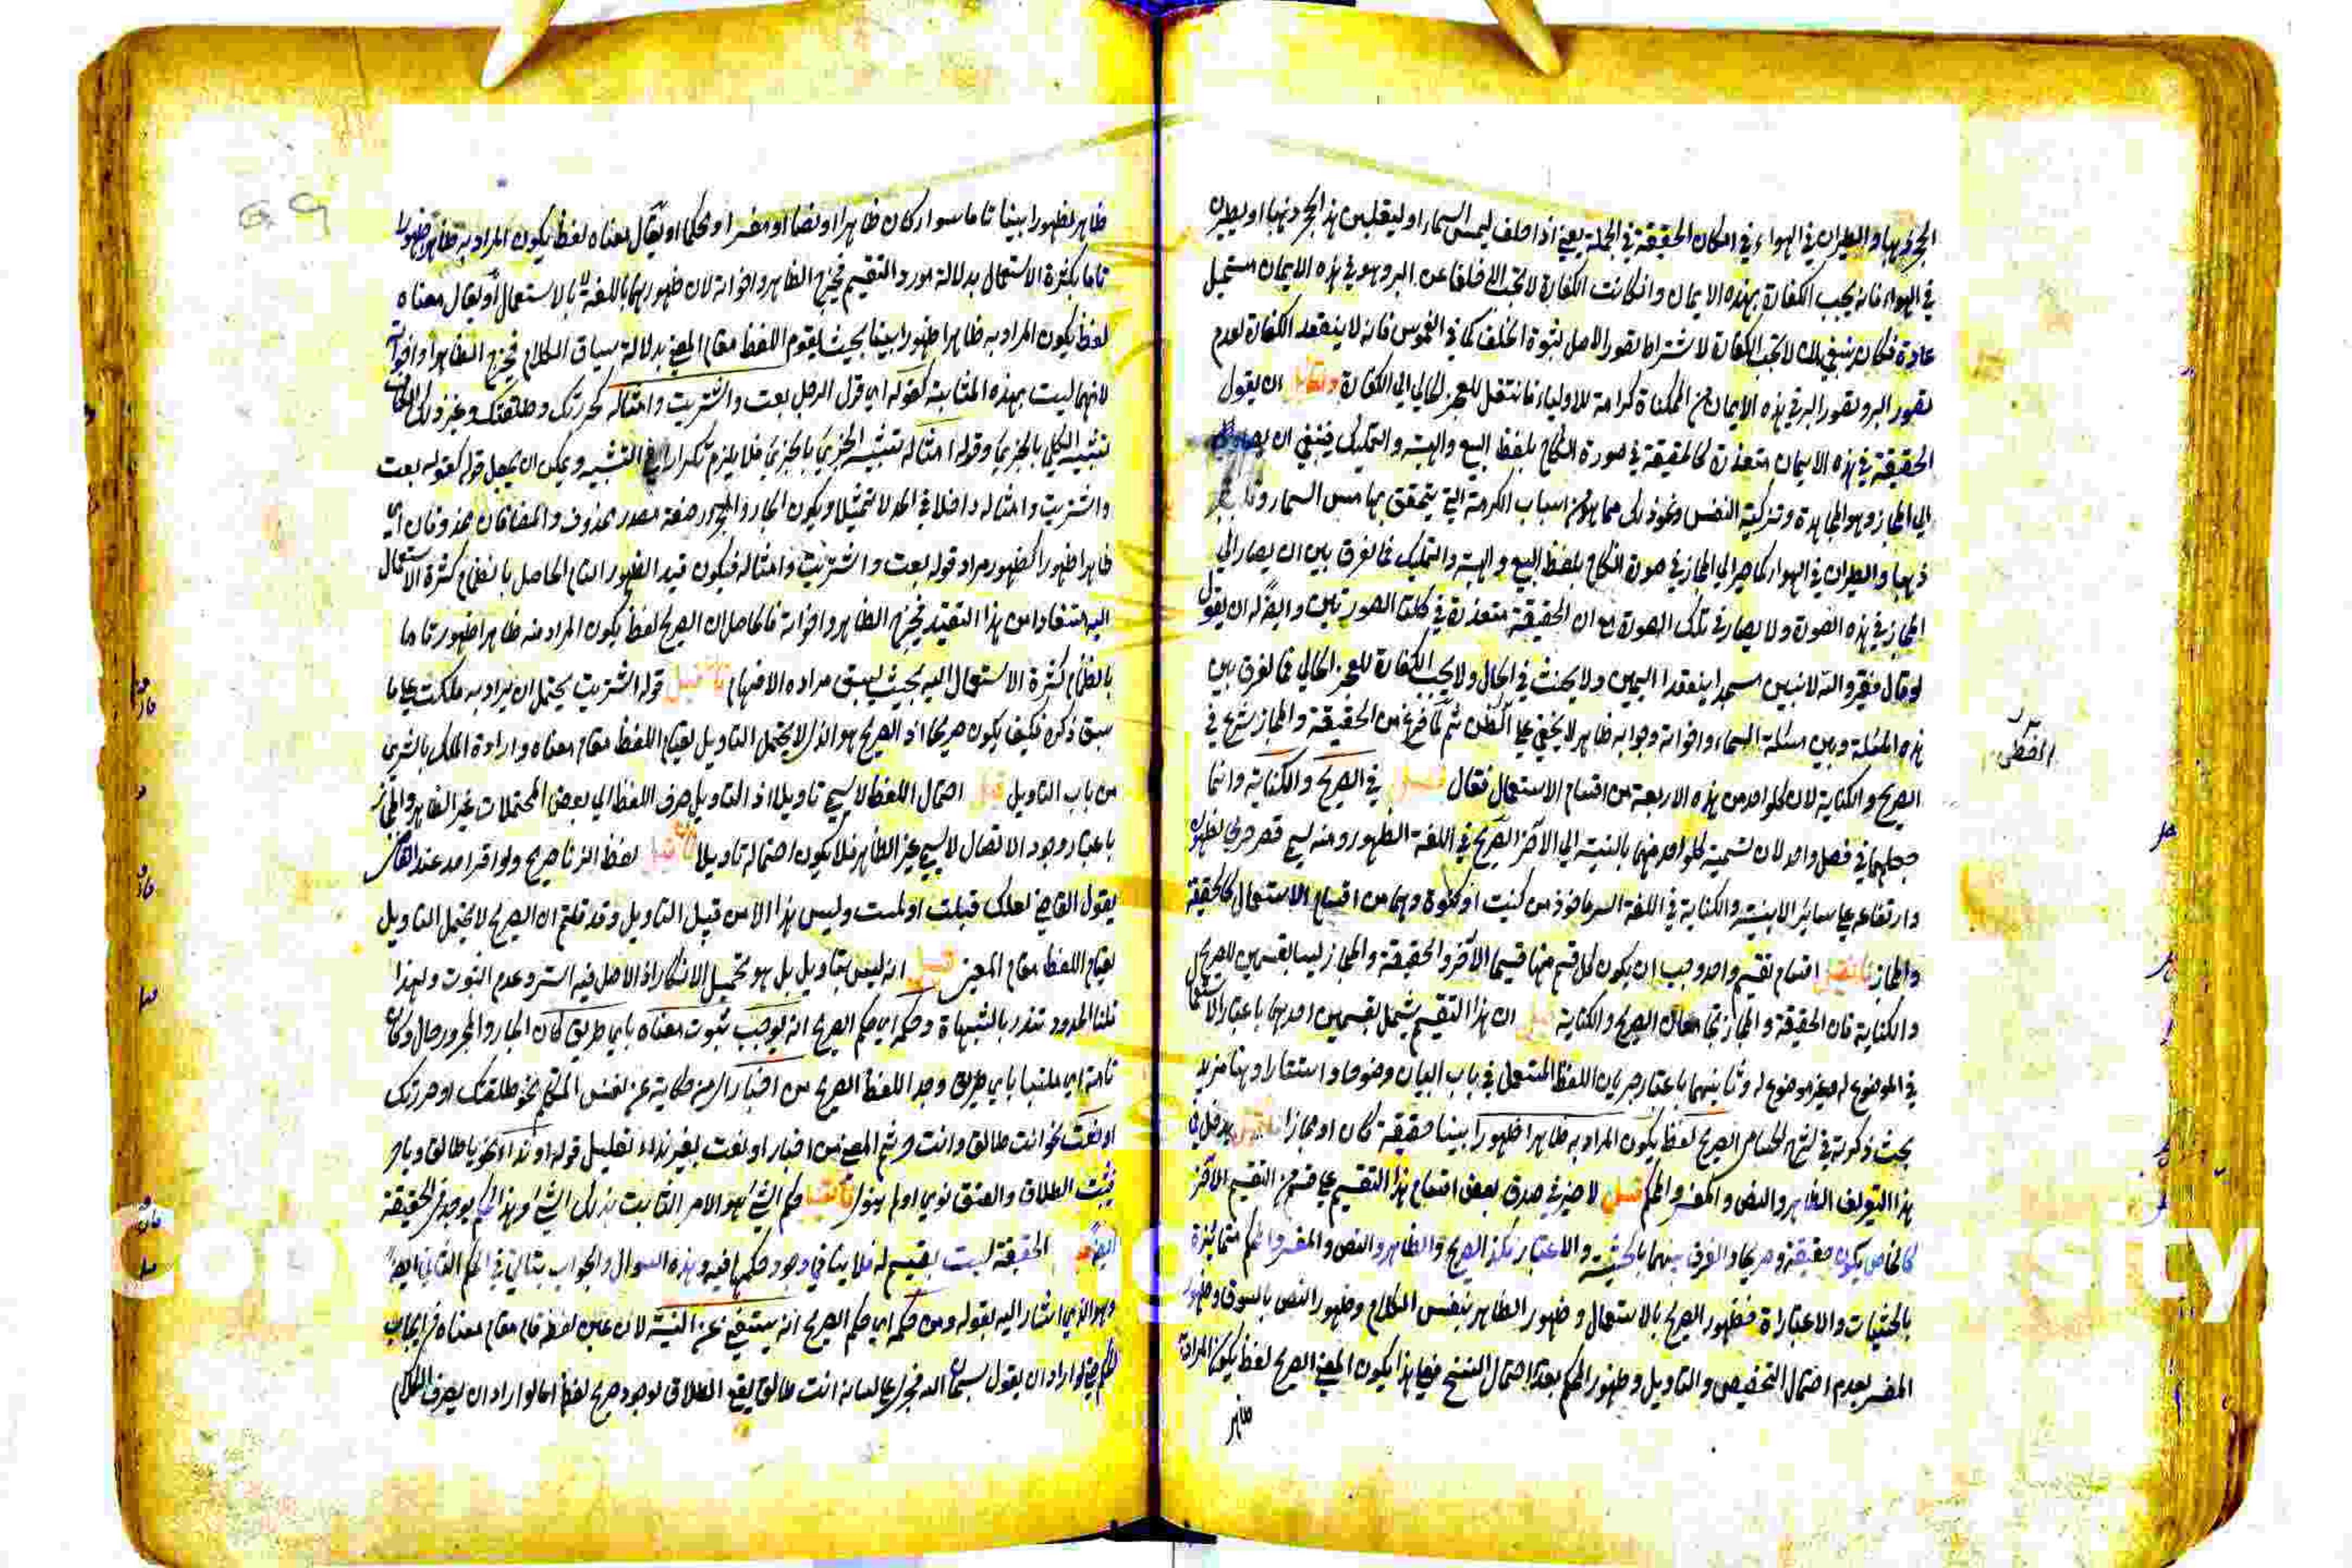 الحجر ذهبا والطيران في الهواء في امكان الحقيقة في الجملة يعني اذا حلف ليمسن السماء او ليقلبن هذا الحجر ذهبا او ليطيرن
في الهواء فانه يجب الكفارة بهذه الايمان وان كانت الكفارة لا تجب الا خلفا عن البر وهو في هذه الايمان مستحيل
عادة فكان ينبغي ان لا تجب الكفارة لاشتراط تصور الاصل لثبوت الخلف كما في الغموس فانه لا ينعقد الكفارة لعدم
تصور البر وتصور البر في هذه الايمان من الممكنات كرامة للاولياء فانتقل للعجز الحالي الى الكفارة ولقائل ان يقول
الحقيقة في هذه الايمان متعذرة كالحقيقة في صورة النكاح بلفظ البيع والهبة والتمليك فينبغي ان يصار
الى المجاز وهو المجاهدة وتزكية النفس ونحو ذلك مما هو من اسباب الكرامة التي يتحقق بها مس السماء
ذهبا والطيران في الهواء كما صير الى المجاز في صورة النكاح بلفظ البيع والهبة والتمليك فما الفرق بين ان يصار الى
المجاز في هذه الصورة ولا يصار في تلك الصورة مع ان الحقيقة متعذرة في كلتا الصورتين وايضا له ان يقول
لو قال فقير والله لابنين مسجدا ينعقد اليمين ولا يحنث في الحال ولا يجب الكفارة للعجز الحالي فما الفرق بين
هذه المسئلة وبين مسئلة السماء واخواته وجوابه ظاهر لا يخفى على الفطن ثم لما فرغ من الحقيقة والمجاز شرع في
الصريح والكناية لان كل واحد من هذه الاربعة من اقسام الاستعمال فقال فصل في الصريح والكناية وانما
جعلهما في فصل واحد لان تسمية كل واحد منهما بالنسبة الى الآخر الصريح في اللغة الظهور ومنه سمي قصر صرحا لظهوره
وارتفاعه على سائر الابنية والكناية في اللغة الستر ماخوذ من كنيت او كنوت وهما من اقسام الاستعمال كالحقيقة
والمجاز فان قيل اقسام تقسيم واحد وجب ان يكون كل قسم منها قسيما لآخر والحقيقة والمجاز ليسا بقسيمين للصريح
والكناية فان الحقيقة والمجاز تجامعان الصريح والكناية قيل ان هذا التقسيم يشمل تقسيمين احدهما باعتبار الاستعمال
في الموضوع له وغير موضوع له وثانيهما باعتبار جريان اللفظ المستعمل في باب البيان وضوحا واستتارا وهنا مزيد
بحث ذكرته في شرح الحسامي الصريح لفظ يكون المراد به ظاهرا ظهورا بينا حقيقة كان او مجازا فان قيل يدخل في
هذا التعريف الظاهر والنص والمفسر والمحكم قيل لا ضير في صدق بعض اقسام هذا التقسيم على قسم من التقسيم الآخر
كالخاص يكون حقيقة وصريحا والفرق بينهما بالحيثية والاعتبار فكذا الصريح والظاهر والنص والمفسر والمحكم متمايزة
بالحيثيات والاعتبارات فظهور الصريح بالاستعمال وظهور الظاهر بنفس الكلام وظهور النص بالسوق وظهور
المفسر بعدم احتمال التخصيص والتاويل وظهور المحكم بعدم احتمال النسخ فعلى هذا يكون المعنى الصريح لفظ يكون المراد به
ظاهر
ظاهرا ظهورا بينا تاما سواء كان ظاهرا او نصا او مفسرا او محكما او يقال معناه لفظ يكون المراد به ظاهرا ظهورا
تاما بكثرة الاستعمال بدلالة مورد التقسيم فيخرج الظاهر واخواته لان ظهورها باللغة لا بالاستعمال او يقال معناه
لفظ يكون المراد به ظاهرا ظهورا بينا بحيث يقوم اللفظ مقام المعنى بدلالة سياق الكلام فيخرج الظاهر واخواته
لانها ليست بهذه المثابة كقوله اي قول الرجل بعت واشتريت وامثاله كحررتك وطلقتك وغير ذلك
تشبيه الكلي بالجزئي وقوله امثاله تشبيه الجزئي بالجزئي فلا يلزم تكرار في التشبيه ويمكن ان يجعل قوله كقوله بعت
واشتريت وامثاله داخلا في الحد لا تمثيلا ويكون الجار والمجرور صفة مصدر محذوف والمضافان محذوفان اي
ظاهرا ظهورا كظهور مراد قوله بعت واشتريت وامثاله فيكون قيد الظهور التام الحاصل بانضمام كثرة الاستعمال
اليه مستفادا من هذا التقييد فيخرج الظاهر واخواته فالحاصل ان الصريح لفظ يكون المراد منه ظاهرا ظهورا تاما
بانضمام كثرة الاستعمال اليه بحيث يسبق مراده الافهام فان قيل قوله اشتريت يحتمل ان يراد به ملكت على ما
سبق ذكره فكيف يكون صريحا اذ الصريح هو الذي لا يحتمل التاويل لقيام اللفظ مقام معناه وارادة الملك بالشرى
من باب التاويل قيل احتمال اللفظ لا يسمى تاويلا اذ التاويل صرف اللفظ الى بعض المحتملات غير الظاهر والمجاز
باعتبار وجود الاتصال لا يسمى غير الظاهر فلا يكون احتماله تاويلا فان قيل لفظ الزنا صريح ولو اقر احد عند القاضي
يقول القاضي لعلك قبلت او لمست وليس هذا الا من قبيل التاويل وقد قلتم ان الصريح لا يحتمل التاويل
لقيام اللفظ مقام المعنى قيل انه ليس بتاويل بل هو تحميل الانكار اذ الاصل فيه الستر وعدم الثبوت ولهذا
قلنا الحدود تندرء بالشبهات وحكمه اي حكم الصريح انه يوجب ثبوت معناه باي طريق كان الجار والمجرور حال وكان
تامة اي ملتبسا باي طريق وجد اللفظ الصريح من اخبار الزمن حكاية عن نفس المتكلم نحو طلقتك او حررتك
او نعت نحو انت طالق وانت حر ثم المعنى من اخبار او نعت بغير نداء تعليل قوله او نداء نحو يا طالق ويا حر
يثبت الطلاق والعتق نوى او لم ينو فان قيل حكم الشيء هو الامر الثابت بذلك الشيء وهذا الحكم يوجد في الحقيقة
ايضا قيل الحقيقة ليست بقسيم له فلا ينافي وجود حكمها فيه وهذه السوال والجواب يتاتى في الحكم الثاني ايضا
وهو الذي اشار اليه بقوله ومن حكمه اي حكم الصريح انه يستغني عن النية لان عين لفظه قام مقام معناه في ايجاب
الحكم حتى لو اراد ان يقول سبحان الله فجرى على لسانه انت طالق يقع الطلاق لوجود صريح لفظه اما لو اراد ان يصرف الكلام